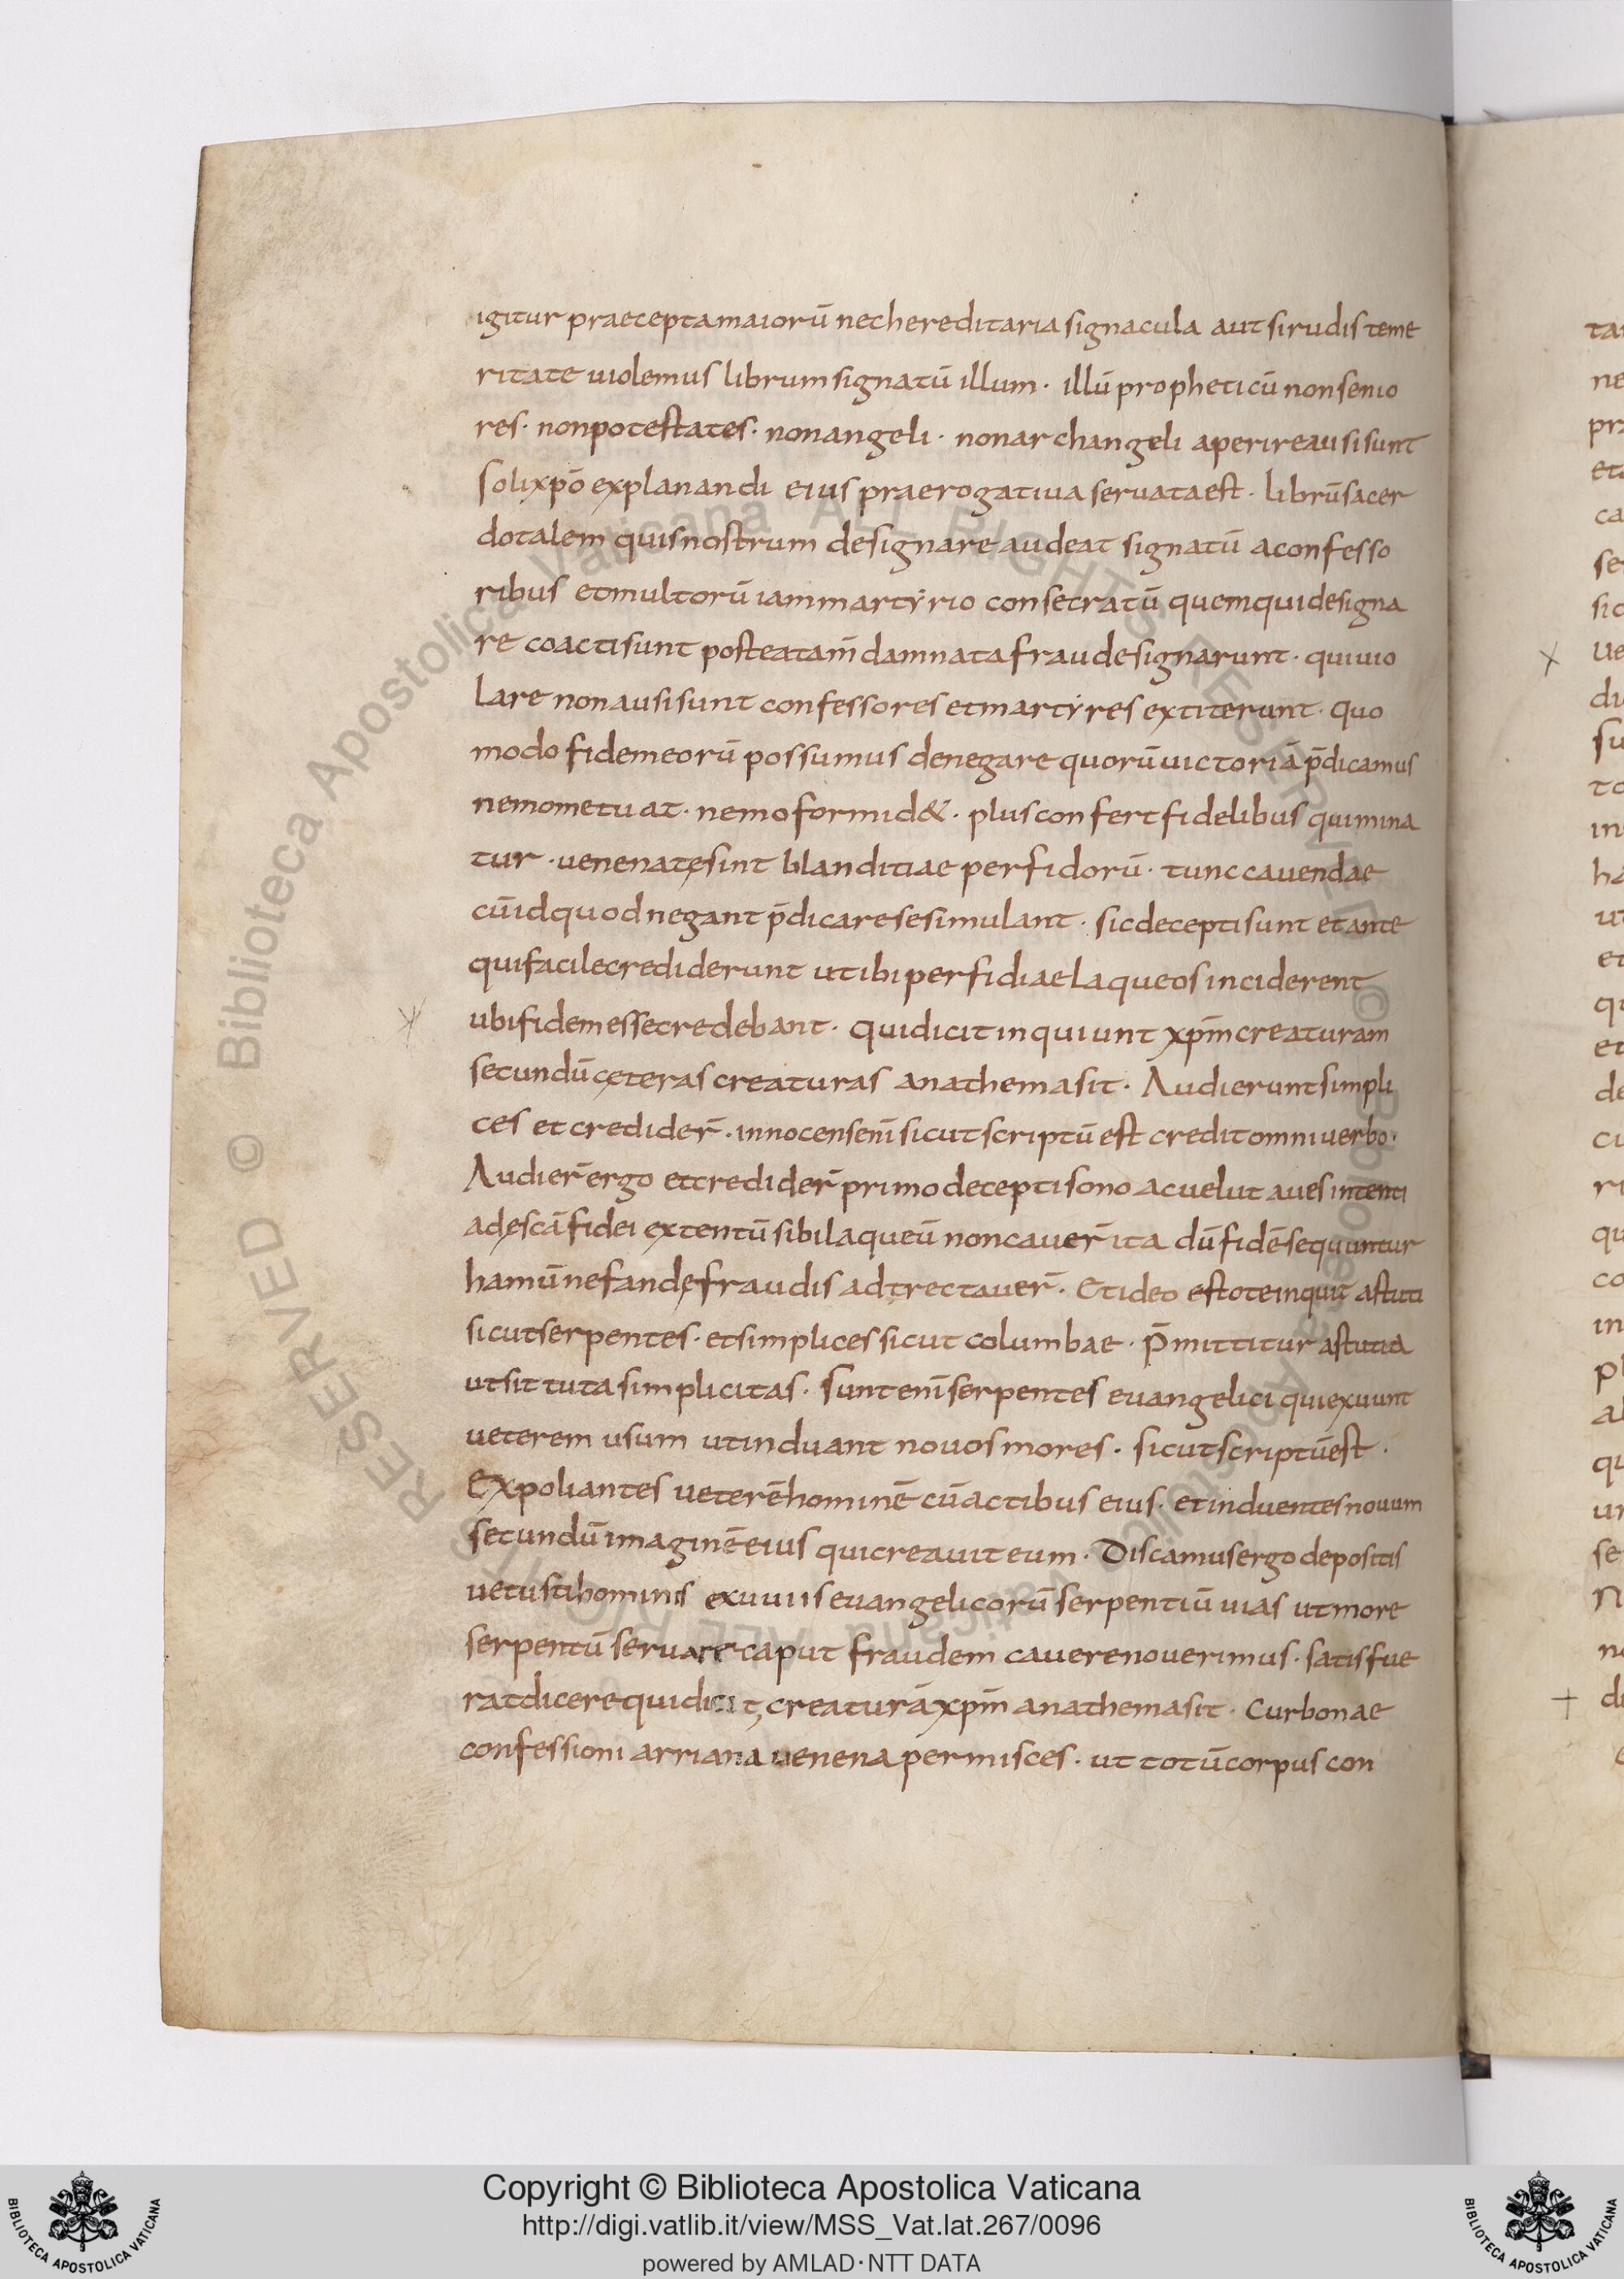 igitur praecepta maiorū nec hereditaria signacula aut si rudis teme
ritate uiolemus librum signatū illum · illū propheticū non senio
res · non potestates · non angeli · non archangeli aperire ausi sunt
soli xpō explanandi eius praerogatiua seruata est · librū sacer
dotalem quis nostrum designare audeat signatū a confesso
ribus et multorū iam martẏrio consecratū quem qui designa
re coacti sunt postea tam̄ damnata fraude signarunt · qui uio
lare non ausi sunt confessores et martẏres extiterunt · quo
modo fidem eorū possumus denegare quorū uictoriā p̄dicamus
nemo metuat · nemo formid& · plus confert fidelibus qui mina
tur · uenenatę sint blanditiae perfidorū · tunc cauendae
cū id quod negant p̄dicare se simulant · sic decepti sunt et ante
qui facile crediderunt ut ibi perfidiae laqueos inciderent
ubi fidem esse credebant · qui dicit inquiunt xpm̄ creaturam
secundū cęteras creaturas anathema sit · Audierunt simpli
ces et credider̄ · innocens eni̅ sicut scriptū est credit omni uerbo ·
Audier̄ ergo et credider̄ primo decepti sono ac uelut aues intenti
ad escā fidei extentū sibi laqueū non cauer̄ ita dū fidē sequntur
hamū nefandę fraudis adtrectauer̄ · Et ideo estote inquit astuti
sicut serpentes · et simplices sicut columbae · P̄mittitur astutia
ut sit tuta simplicitas · sunt eni̅ serpentes euangelici qui exuunt
ueterem usum ut induant nouos mores · sicut scriptū est ·
Expoliantes ueterē hominē cū actibus eius · et induentes nouum
secundū imaginē eius qui creauit eum · Discamus ergo depositis
uetusti hominis exuuiis euangelicorū serpentiū uias ut more
serpentū seruare caput fraudem cauere nouerimus · satis fue
rat dicere qui dicit creaturā xpm̄ anathema sit · Cur bonae
confessioni arriana uenena permisces · ut totū corpus con
Copyright © Biblioteca Apostolica Vaticana
http://digi.vatlib.it/view/MSS_Vat.lat.267/0096
powered by AMLAD · NTT DATA
BIBLIOTECA APOSTOLICA VATICANA
BIBLIOTECA APOSTOLICA VATICANA